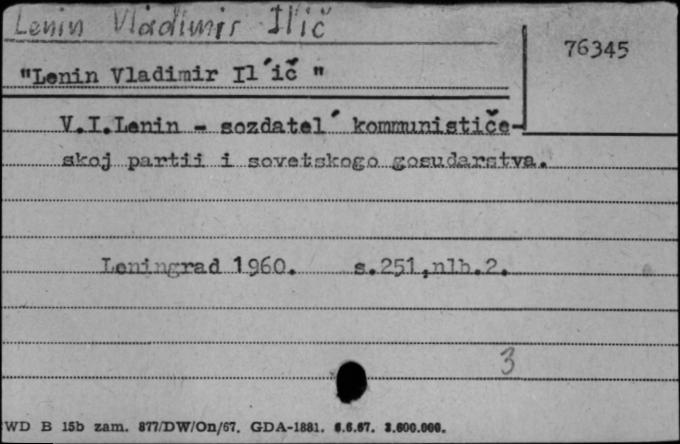 Lenin Vladimir Il'ič
76345
"Lenin Vladimir Il´ič "
V.I.Lenin - sozdatel´ kommunističe-
skoj partii i sovetskogo gosudarstva.
Leningrad 1960. s.251,nlb.2.
3
WD B 15b zam. 877/DW/On/67. GDA-1881. 6.6.67. 3.600.000.